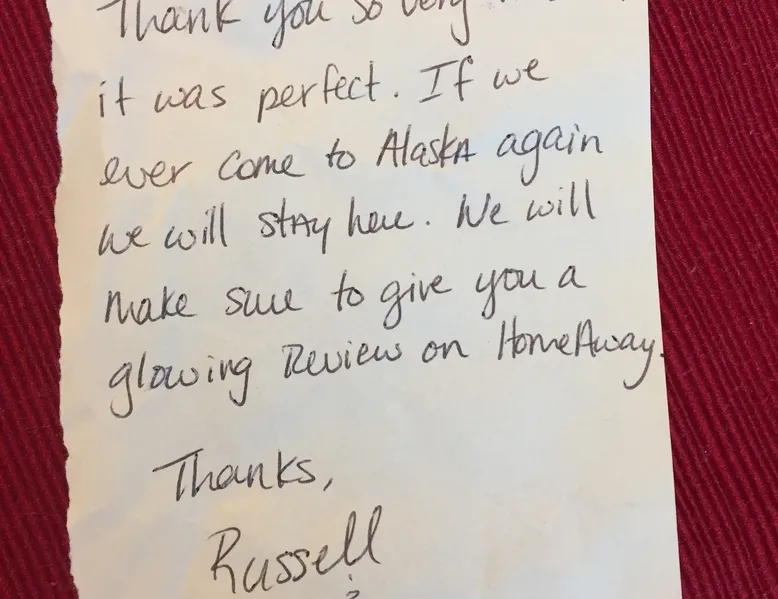 Thank you so very
it was perfect. If we
ever come to Alaska again
we will stay here. We will
make sure to give you a
glowing Review on HomeAway.
Thanks,
Russell